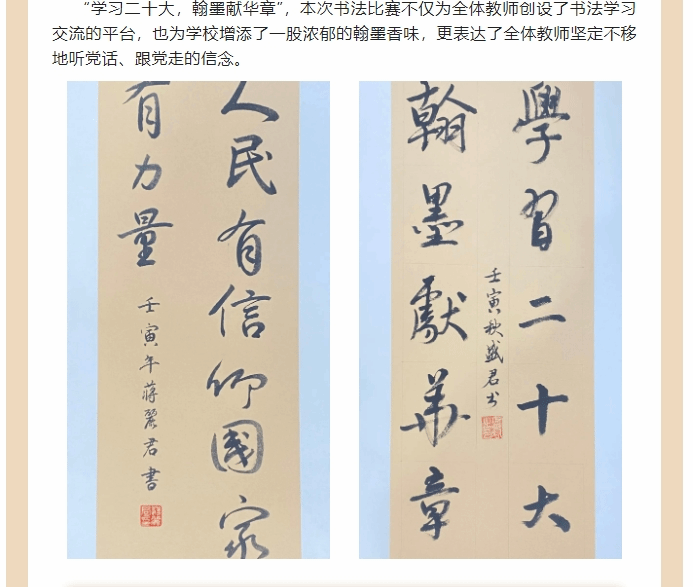 “学习二十大，翰墨献华章”，本次书法比赛不仅为全体教师创设了书法学习
交流的平台，也为学校增添了一股浓郁的翰墨香味，更表达了全体教师坚定不移
地听党话、跟党走的信念。
人民有信仰國家
有力量
壬寅年蒋麗君書
學習二十大
翰墨獻華章
壬寅秋盛君书